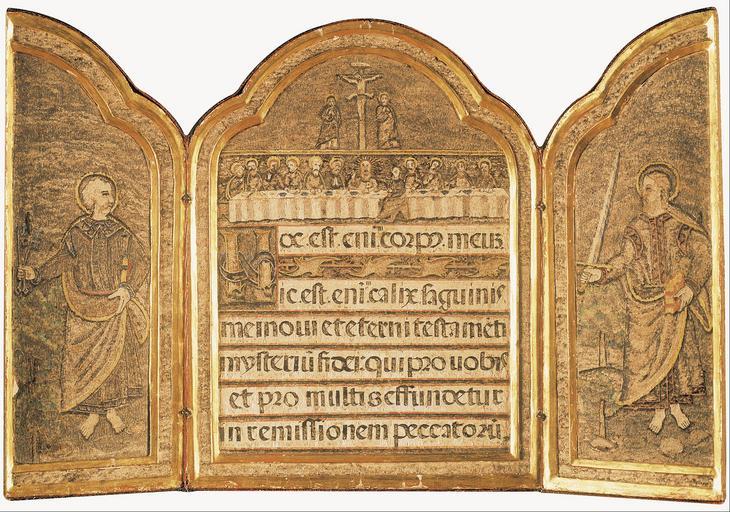 Hoc. est. eni᷒. corpꝰ. meuʒ.
ic. est. eni᷒. calix. sanguinis
mei noui et eterni testamēti
mysteriū fidei: qui pro uobis
et pro multis effundetur
in remissionem peccatorū.